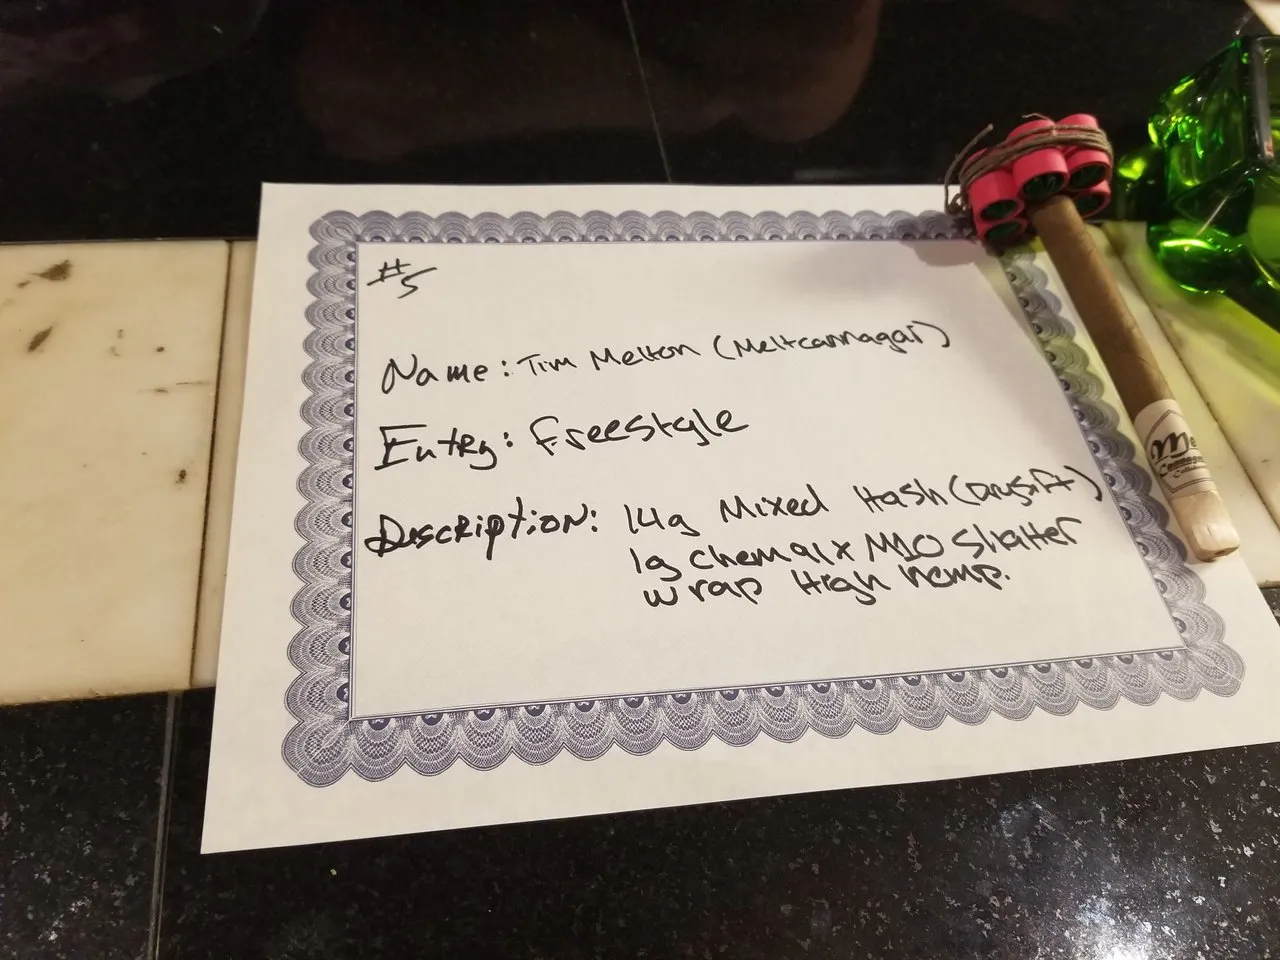 #5
Name: Tim Melton (Meltcannagar)
Entry: Freestyle
Description: 14g Mixed Hash (Drysift)
1g Chem 91 x M10 Shatter
wrap High hemp.
Me